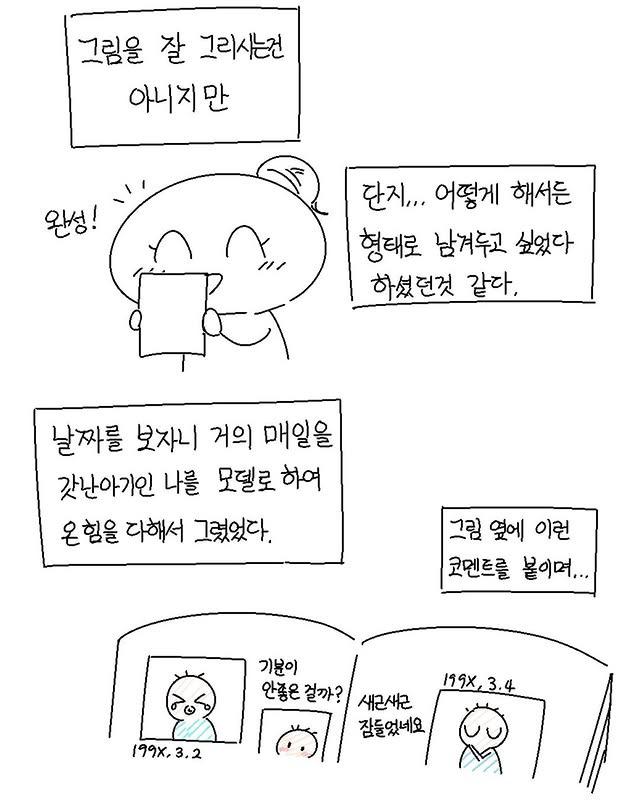 그림을 잘 그리시는건
아니지만
완성!
단지... 어떻게 해서든
형태로 남겨두고 싶었다
하셨던것 같다.
날짜를 보자니 거의 매일을
갓난아기인 나를 모델로 하여
온힘을 다해서 그렸었다.
그림 옆에 이런
코멘트를 붙이며...
기분이
안좋은 걸까?
199X, 3.2
새근새근
잠들었네요
199X, 3.4